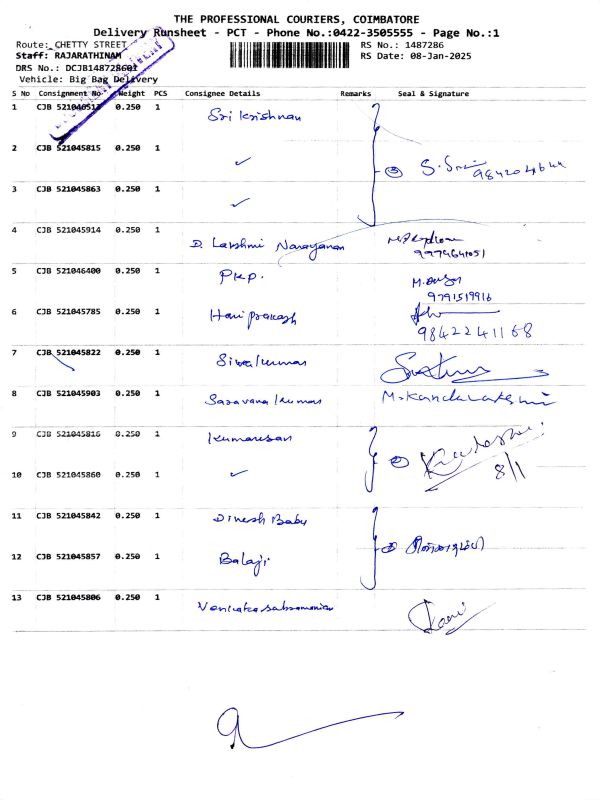 THE PROFESSIONAL COURIERS, COIMBATORE
Delivery Runsheet - PCT - Phone No.:0422-3505555 - Page No.:1
Route: CHETTY STREET RS No.: 1487286
Staff: RAJARATHINAM RS Date: 08-Jan-2025
DRS No.: DCJB148728601
Vehicle: Big Bag Delivery
S No Consignment No. Weight PCS Consignee Details Remarks Seal & Signature
1 CJB 0.250 1 Sri Krishnan
2 CJB 521045815 0.250 1 ✓ 3
3 CJB 521045863 0.250 1 ✓
4 CJB 521045914 0.250 1 D. Lakshmi Narayanan
9974641051
5 CJB 521046400 0.250 1 PKP.
9791519916
6 CJB 521045785 0.250 1 Hari prakash
9842241168
7 CJB 521045822 0.250 1 Sivakumar
8 CJB 521045903 0.250 1 Saravana kumar
9 CJB 521045816 0.250 1 Kumaresan 2
10 CJB 521045860 0.250 1 ✓ 8/1
11 CJB 521045842 0.250 1 Dinesh Babu
12 CJB 521045857 0.250 1 Balaji 2
13 CJB 521045806 0.250 1 Venkatasubramanian